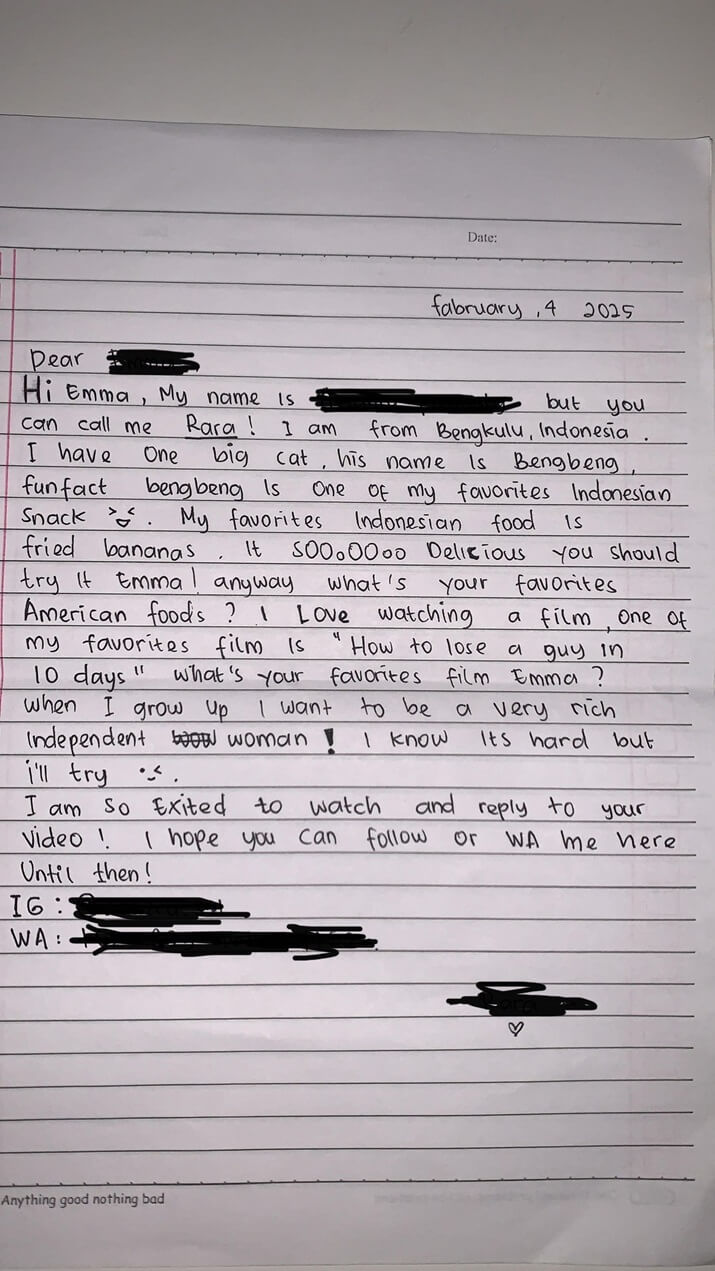 Date:
fabruary ,4 2025
Dear
Hi Emma, My name is but you
can call me Rara! I am from Bengkulu, Indonesia.
I have one big cat, his name is Bengbeng,
funfact bengbeng is one of my favorites Indonesian
snack. My favorites Indonesian food is
fried bananas. It SOOoOOoo Delicious you should
try it Emma! anyway what's your favorites
American foods? I Love watching a film, one of
my favorites film is "How to lose a guy in
10 days" what's your favorites film Emma?
when I grow up I want to be a very rich
Independent woman! I know its hard but
i'll try
I am so Exited to watch and reply to your
video! I hope you can follow or WA me here
Until then!
IG:
WA:
Anything good nothing bad